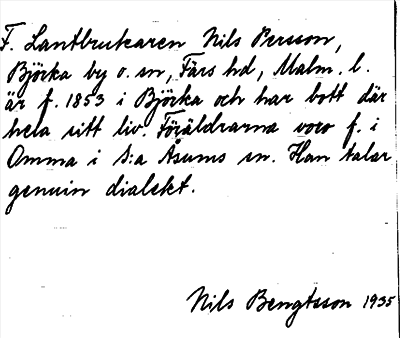 F. Lantbrukaren Nils Persson,
Björka by o. sn, Färs hd, Malm. l.
är f. 1853 i Björka och har bott där
hela sitt liv. Föräldrarna voro f. i
Omma i S:a Åsums sn. Han talar
genuin dialekt.
Nils Bengtsson 1935